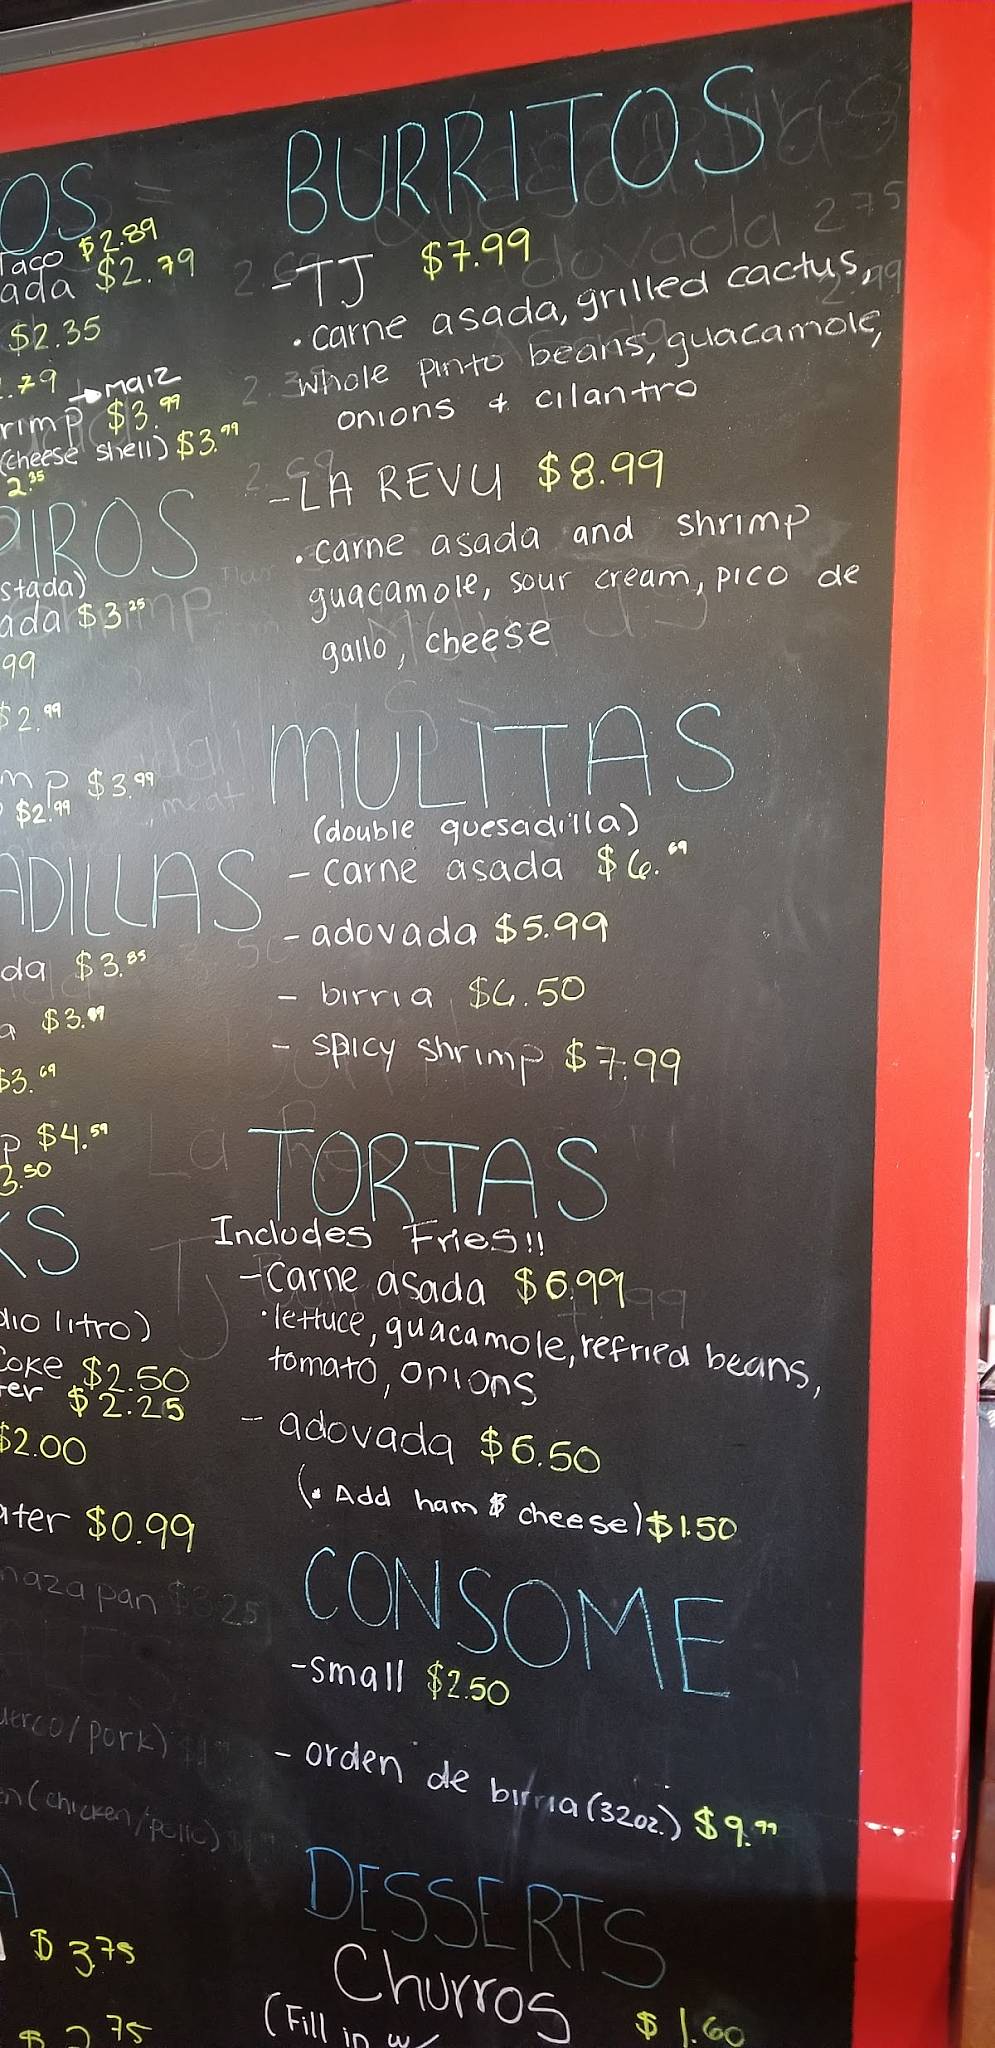 OS
Taco $2.89
ada $2.79
$2.35
.79
→maiz
rimp $3.99
(cheese shell) $3.99
2.35
PIROS
stada)
ada $3.25
99
$2.99
mp $3.99
$2.99
ADILLAS
da $3.85
a $3.99
$3.69
p $4.59
3.50
KS
dio litro)
Coke $2.50
ter $2.25
$2.00
ater $0.99
mazapan $3.25
uerco/pork)
en (chicken/pollo)
A
$3.75
$2.75
BURRITOS
-TJ $7.99
• carne asada, grilled cactus,
whole pinto beans, guacamole,
onions & cilantro
-LA REVU $8.99
• carne asada and shrimp
guacamole, sour cream, pico de
gallo, cheese
MULITAS
(double quesadilla)
- carne asada $6.69
- adovada $5.99
- birria $6.50
- spicy shrimp $7.99
TORTAS
Includes Fries!!
-Carne asada $6.99
• lettuce, guacamole, refried beans,
tomato, onions
- adovada $6.50
(• Add ham & cheese) $1.50
CONSOME
-small $2.50
- orden de birria (32oz.) $9.99
DESSERTS
Churros $1.60
(Fill in w/